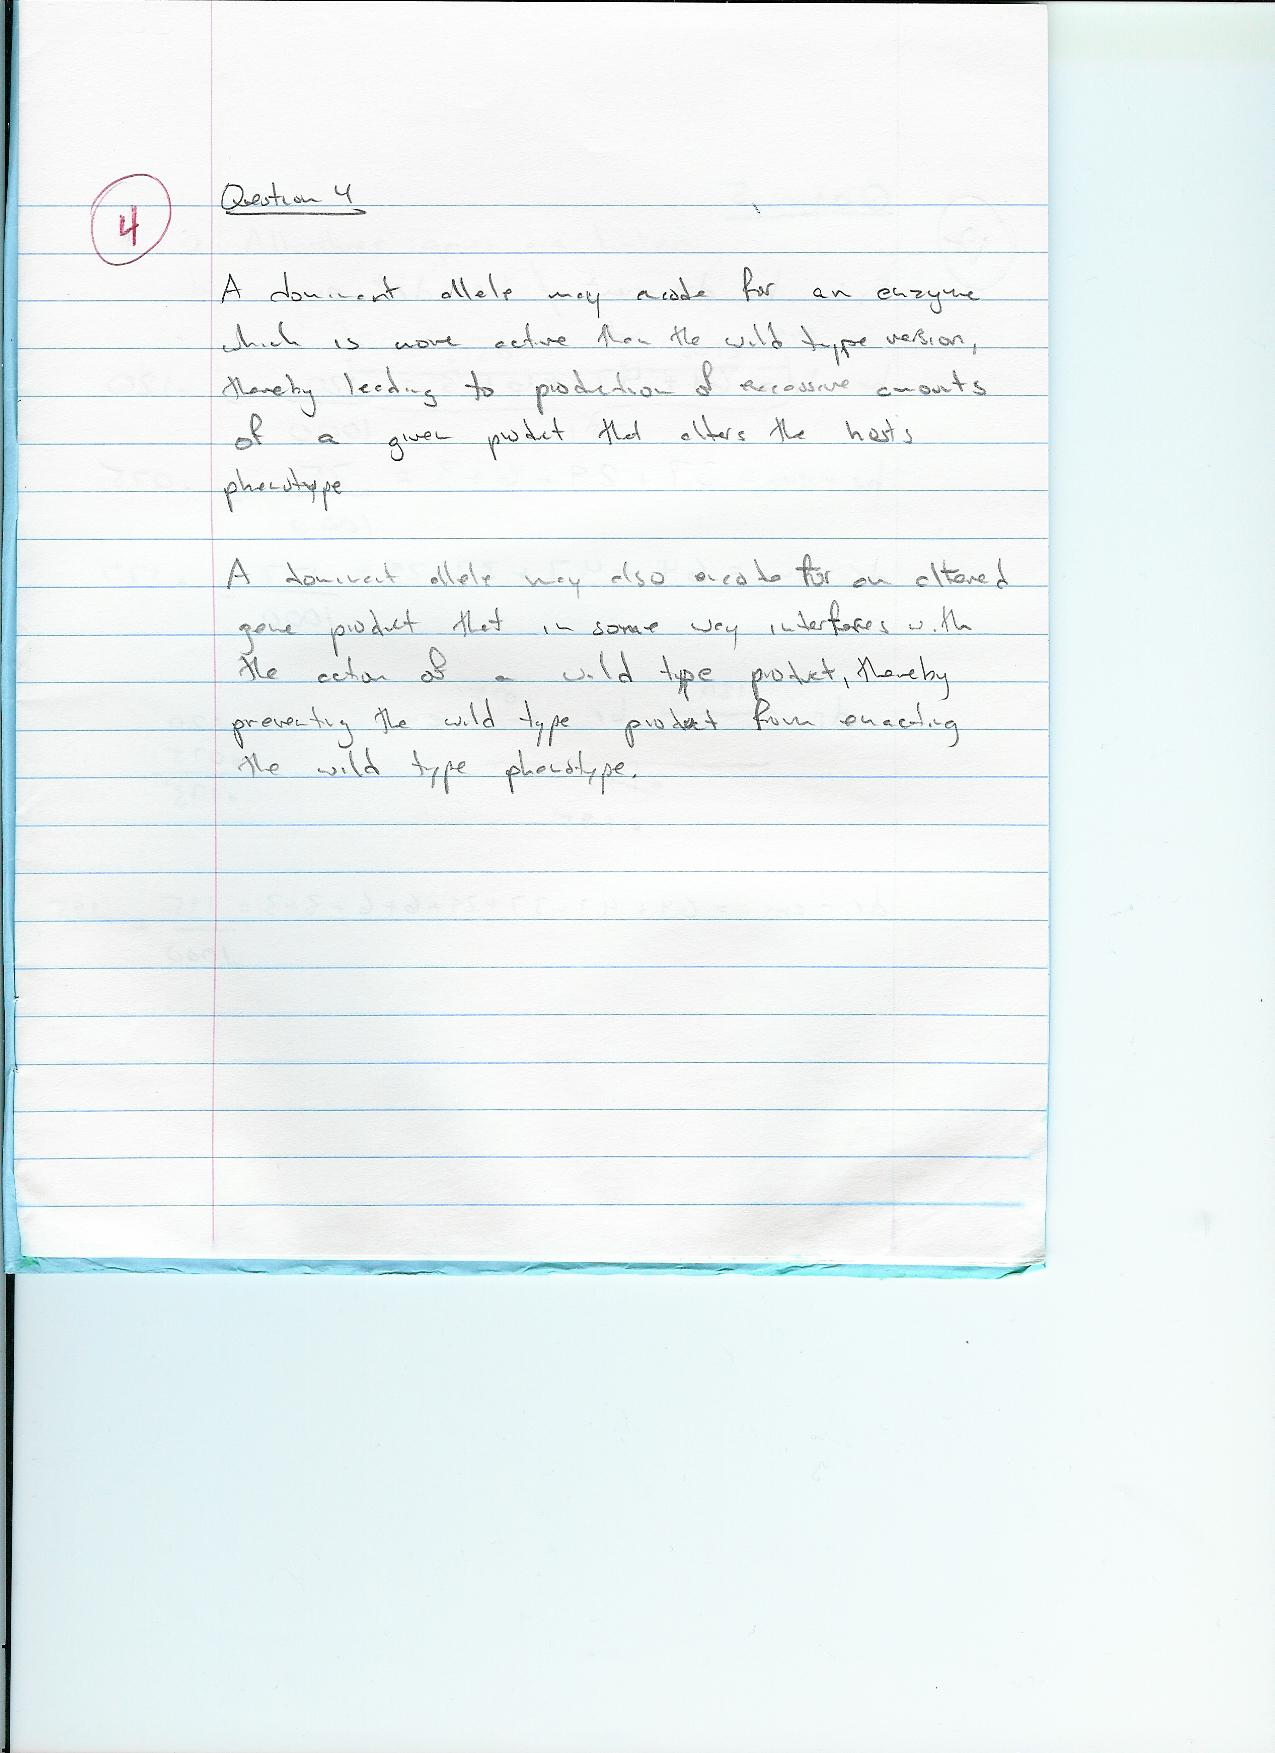 4
Question 4
A dominant allele may encode for an enzyme
which is more active than the wild type version,
thereby leading to production of excessive amounts
of a given product that alters the hosts
phenotype
A dominant allele may also encode for an altered
gene product that in some way interferes with
the action of a wild type product, thereby
preventing the wild type product from enacting
the wild type phenotype.